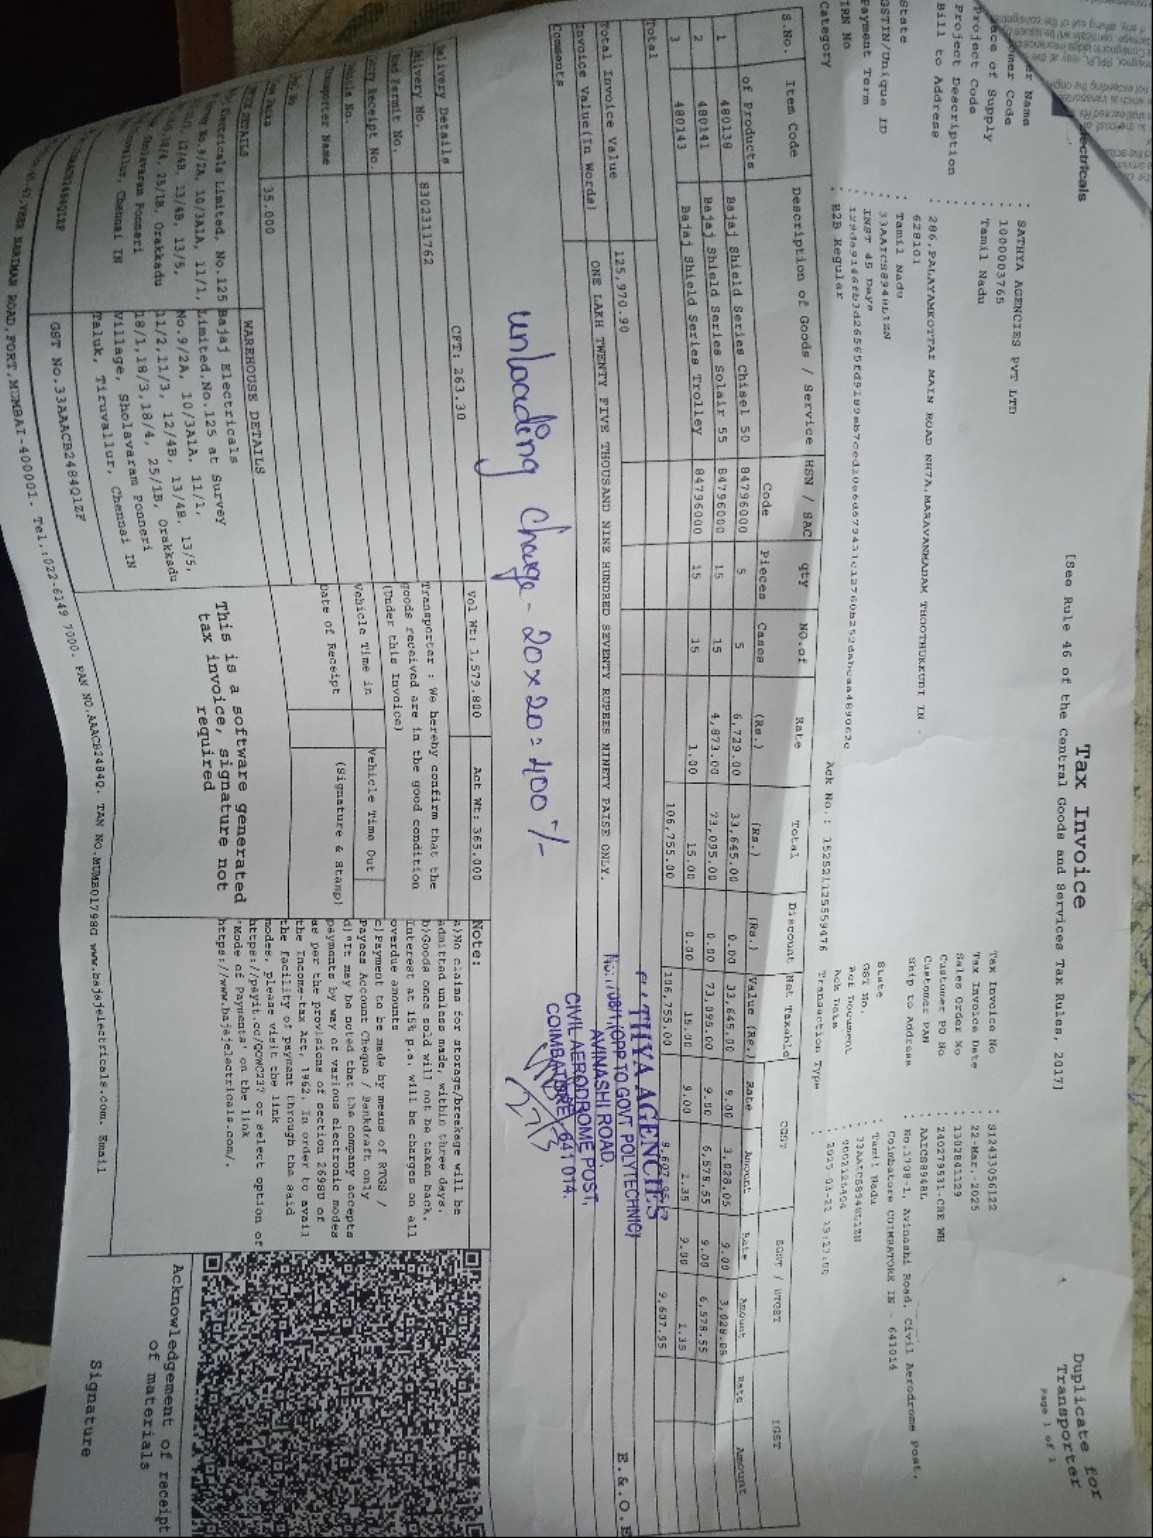 Tax Invoice
[See Rule 46 of the Central Goods and Services Tax Rules, 2017]
Duplicate for
Transporter
Page 1 of
ectricals
er Name : SATHYA AGENCIES PVT LTD
mer Code : 1000003765
ace of Supply : Tamil Nadu
Project Code :
Project Description :
Bill to Address : 286,PALAYAMKOTTAI MAIN ROAD NH7A,MARAVANMADAM THOOTHUKKUDI IN -
628101
State : Tamil Nadu
GSTIN/Unique ID : 33AAICS8948L1ZN
Payment Term : INST 45 Days
IRN No
Category : B2B Regular
Tax Invoice No : 812433056122
Tax Invoice Date : 22-Mar.-2025
Sales Order No : 1302841129
Customer PO No : 240279531-CBE WH
Customer PAN : AAICS8948L
Ship to Address : No.1708-1, Avinashi Road, Civil Aerodrome Post,
Coimbatore COIMBATORE IN - 641014
State : Tamil Nadu
GST No. : 33AAICS8948L1ZN
Ack No.: 152521125559476
Ack Date
Transaction Type :
S.No. Item Code Description of Goods / Service HSN / SAC qty NO.of Rate Total Discount Net Taxable CGST SGST / UTGST IGST
of Products Code Pieces Cases (Rs.) (Rs.) (Rs.) Value (Rs.) Rate Amount Rate Amount Rate Amount
1 480138 Bajaj Shield Series Chisel 50 84796000 5 5 6,729.00 33,645.00 0.00 33,645.00 9.00 3,028.05 9.00 3,028.05
2 480141 Bajaj Shield Series Solair 55 84796000 15 15 4,873.00 73,095.00 0.00 73,095.00 9.00 6,578.55 9.00 6,578.55
3 480143 Bajaj Shield Series Trolley 84796000 15 15 1.00 15.00 0.00 15.00 9.00 1.35 9.00 1.35
Total 106,755.00 106,755.00 9,607.95 9,607.95
Total Invoice Value 125,970.90 E.&.O.E
Invoice Value(In Words) ONE LAKH TWENTY FIVE THOUSAND NINE HUNDRED SEVENTY RUPEES NINETY PAISE ONLY.
Comments
SATHYA AGENCIES
No:1708/1,(OPP TO GOVT POLYTECHNIC)
AVINASHI ROAD,
CIVIL AERODROME POST,
COIMBATORE - 641 014.
27/3
unloading charge - 20 x 20 = 400 -/-
CFT: 263.30 Vol Wt: 1,579.800 Act Wt: 365.000
Delivery Details
Delivery No. 8302311762
Permit No.
Lorry Receipt No.
Vehicle No.
Transporter Name
35.000
Transporter : We hereby confirm that the
goods received are in the good condition
(Under this Invoice)
Vehicle Time in Vehicle Time Out
Date of Receipt (Signature & Stamp)
Note:
a)No claims for storage/breakage will be
admitted unless made, within three days.
b)Goods once sold will not be taken back.
Interest at 15% p.a. will be charges on all
overdue amounts
c)Payment to be made by means of RTGS /
Payees Account Cheque / Bankdraft only
d)It may be noted that the company accepts
payments by way of various electronic modes
as per the provisions of section 269SU of
the Income-tax Act, 1962. In order to avail
the facility of payment through the said
modes, please visit the link
or select option of
'Mode of Payments' on the link
https://www.bajajelectricals.com/.
WAREHOUSE DETAILS
Bajaj Electricals
Limited,No.125 at Survey
No.9/2A, 10/3A1A, 11/1,
11/2,11/3, 12/4B, 13/4B, 13/5,
18/1,18/3,18/4, 25/1B, Orakkadu
Village, Sholavaram Ponneri
Taluk, Tiruvallur, Chennai IN
GST No.33AAACB2484Q1ZF
This is a software generated
tax invoice, signature not
required
Acknowledgement of receipt
of materials
Signature
FORT,MUMBAI-400001. Tel.:022-6149 7000. PAN NO.AAACB2484Q. TAN NO.MUMB01798G www.bajajelectricals.com. Email